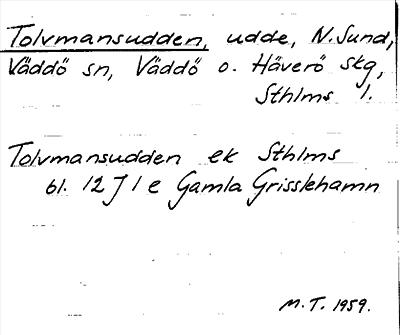 Tolvmansudden, udde, N. Sund,
Väddö sn, Väddö o. Häverö skg,
Sthlms l.
Tolvmansudden ek Sthlms
bl. 12 J 1 e Gamla Grisslehamn
M.T. 1959.